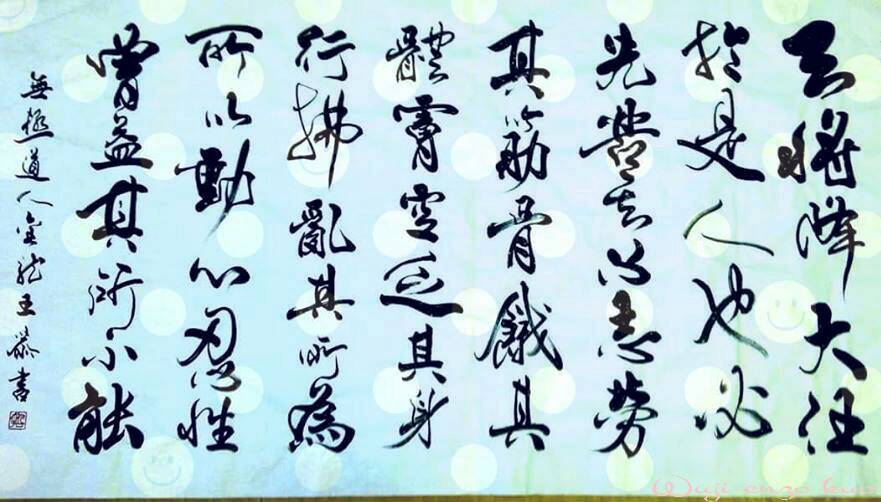 天將降大任
於是人也必
先苦其心志勞
其筋骨餓其
體膚空乏其身
行拂亂其所為
所以動心忍性
曾益其所不能
無極道人金龍王書
Wuji enzo